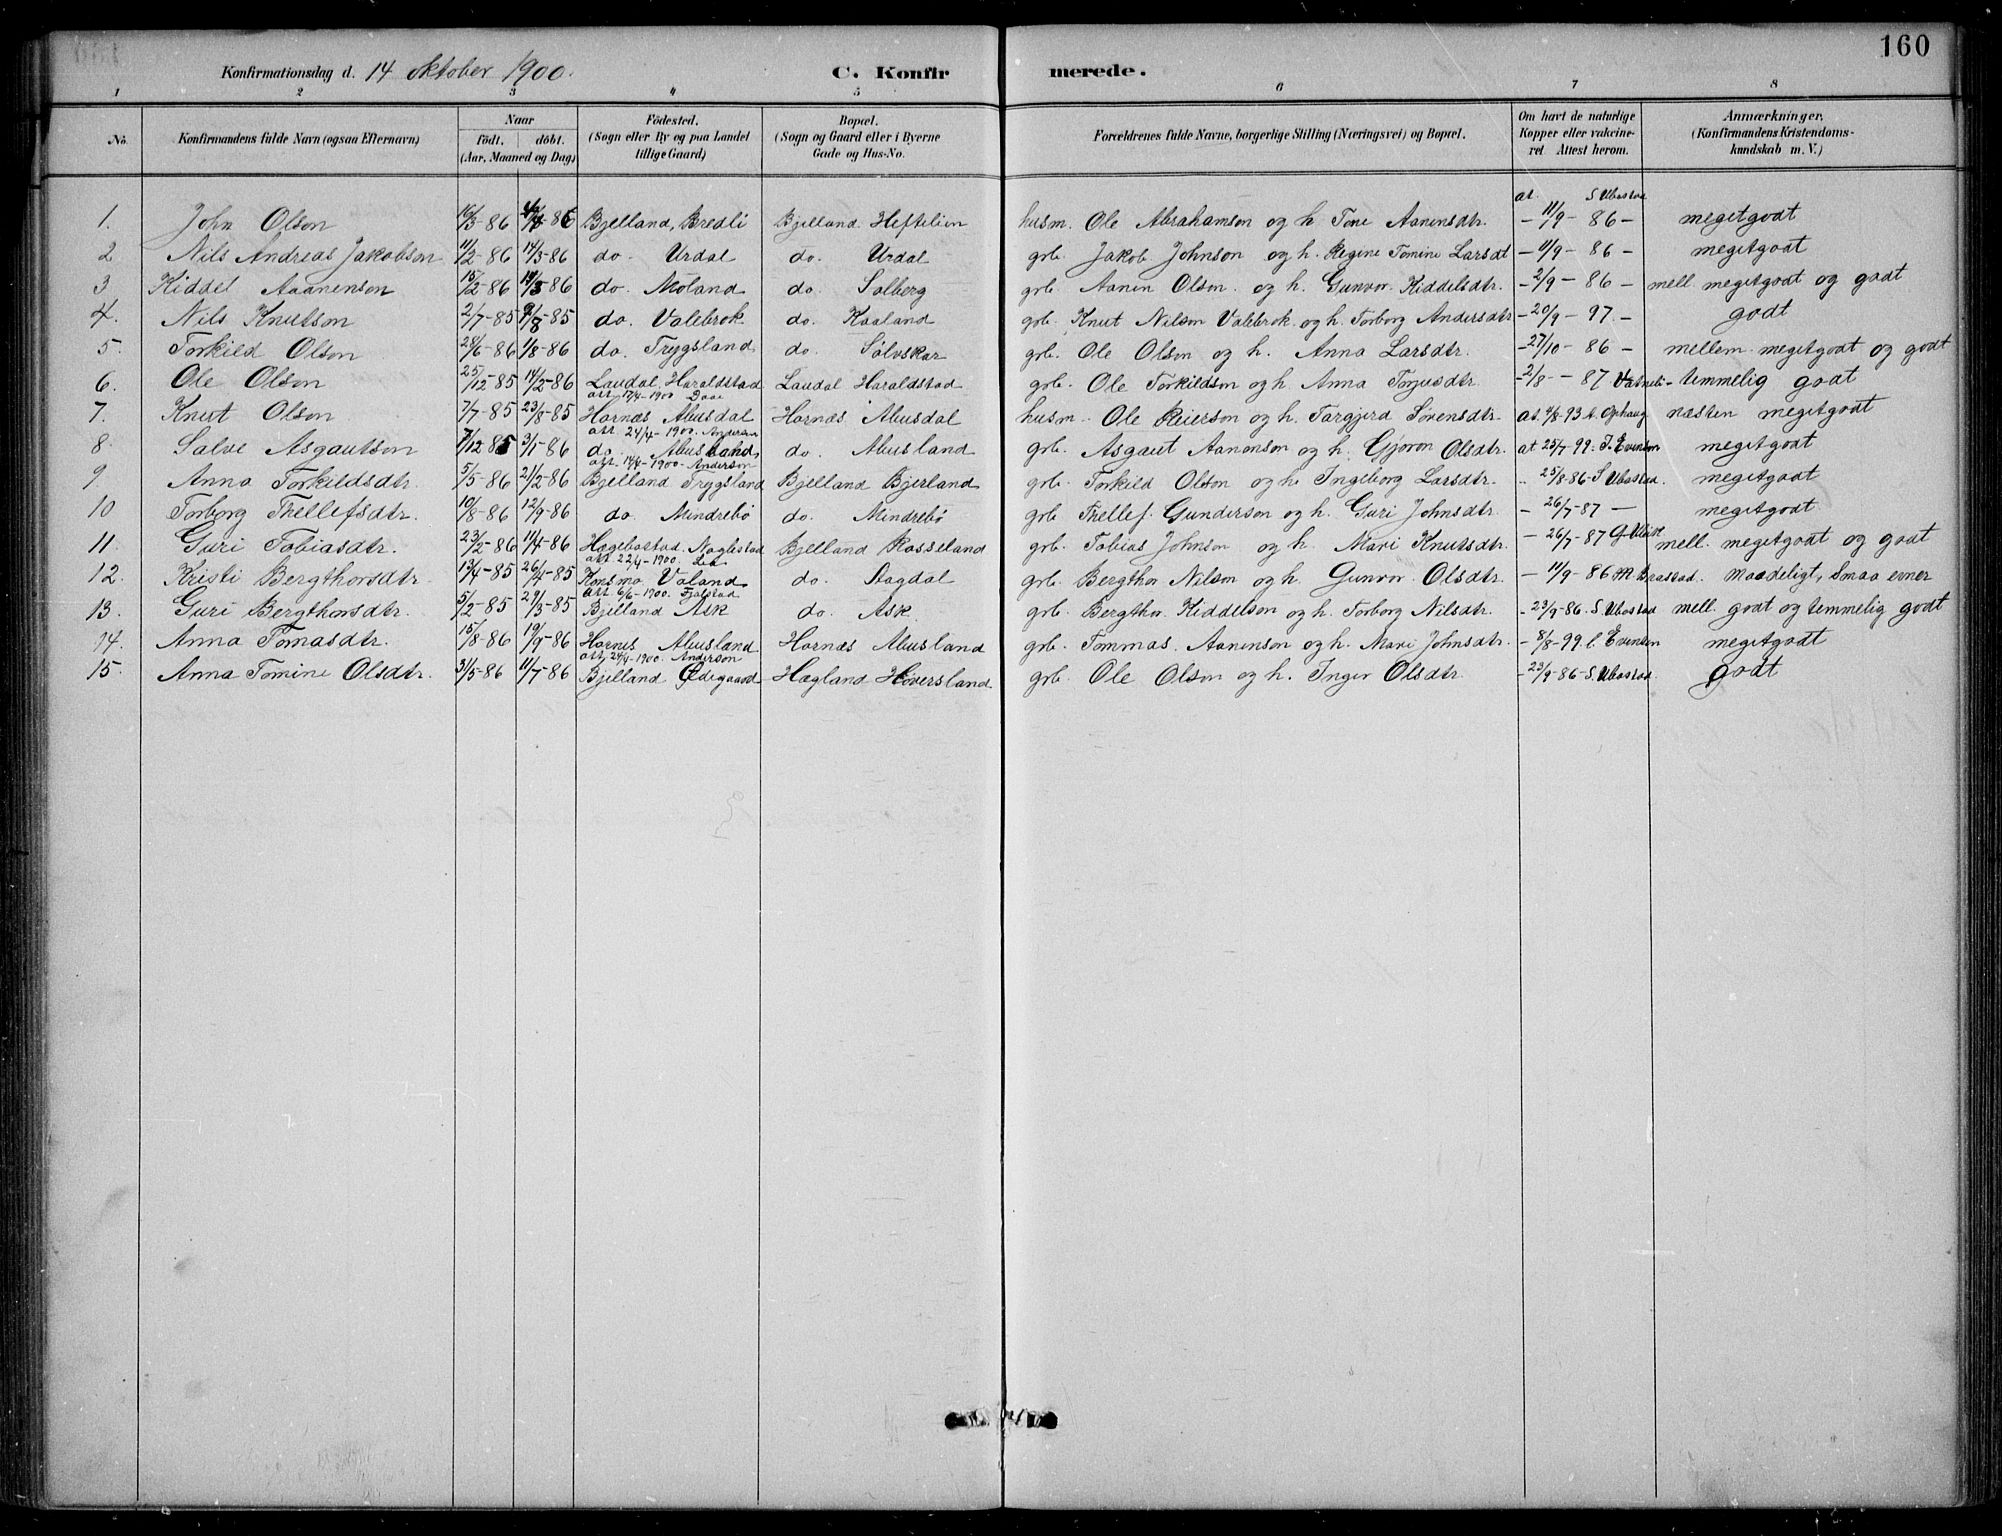 160
Konfirmationsdag d. 14 oktober 1900. C. Konfirmerede.
1 2 3 4 5 6 7 8
No. Konfirmandens fulde Navn (ogsaa Efternavn) Naar födt. döbt. (Aar, Maaned og Dag) Födested. (Sogn eller By og paa Landet tillige Gaard) Bopæl. (Sogn og Gaard eller i Byerne Gade og Hus-No. Forældrenes fulde Navne, borgerlige Stilling (Næringsvei) og Bopæl. Om havt de naturlige Kopper eller vakcineret Attest herom. Anmærkninger. (Konfirmandens Kristendomskundskab m. V.)
at. S Ubostad
1. John Olson 16/3-86 Bjelland, Bredli Bjelland. Heftelien husm. Ole Abrahamson og h. Tone Aanensdtr. - 11/9 - 86 - megitgodt
2 Nils Andreas Jakobson 11/2-86 14/3-86 do. Urdal do. Urdal grb. Jakob Johnson og h. Regine Tomine Larsdt - 11/9 - 86 - megitgodt
3 Kiddel Aaanenson 15/2-86 14/3-86 do. Moland do. Solberg grb. Aanen Olson. og h. Gunvor Kiddelsdtr. - 2/9 - 86 - mell. megitgodt og godt
4. Nils Knutson 2/7-85 9/8-85 do. Valebrok do. Kaaland grb. Knut Nilson Valebrok og h. Torborg Andersdtr - 20/9 - 97. - godt
5. Torkild Olson 28/6-86 1/8-86 do. Trygsland do. Solvskar grb. Ole Olson og h. Anna Larsdtr. - 27/10 - 86 - mellem megitgodt og godt
6. Ole Olson 25/12-85 14/2-86 Laudal, Haraldstad Laudal Haraldstad grb. Ole Torkildson og h. Anna Torjusdtr. - 2/8 - 87 temmelig godt
att 17/4-1900 Daae
7. Knut Olson 7/7-85 23/8-85 Hornæs Abusdal Hornæs Abusdal husm. Ole Reierson og h. Targjerd Sörensdtr. at. 4/8-93 næsten megitgodt
att 24/4-1900. Anderson
8. Salve Asgautson 7/12-85 3/1-86 do. Abusland do. Abusland grb. Asgaut Aanonson og h. Gjoron Olsdtr. at 25/7-99. T. Evenson megitgodt
att. 14/4-1900. Anderson
9. Anna Torkildsdtr. 5/5-86 Bjelland Trygsland Bjelland Bjerland grb. Torkild Olson og h. Ingeborg Larsdtr. 25/8-86 S Ubostad. megitgodt
10 Torborg Thellefsdtr. 10/8-86 12/9-86 do. Mindrebö do. Mindrebö grb Thellef. Gunderson og h. Guri Johnsdtr. - 26/7-87 - megitgodt
11. Guri Tobiasdtr. 23/2-86 11/4-86 Hægebostad. Naglestad Bjelland Rosseland grb. Tobias Johnson og h. Mari Knutsdtr. - 26/7-87 mell. megitgodt og godt
att 22/4-1900. Lea
12. Kristi Bergthorsdtr. 13/4-85 26/4-85 Konsmo Valand do. Stagdal grb. Bergthor Nilson og h. Gunvor Olsdtr. - 11/9-86 Maadeligt, Smaa evner
att. 6/6-1900. Fjelstad
13. Guri Bergthorsdtr. 5/2-85 29/3-85 Bjelland Ask do. Ask. grb. Bergthor Kiddelson og h. Torborg Nilsdtr. - 23/9-86. S. Ubostad mell. godt og temmelig godt
14. Anna Tomasdtr. 15/8-86 19/9-86 Hornes Abusland Hornæs Abusland grb. Tommas Aanenson og h. Mari Johnsdtr. - 8/8-99. Evensen megitgodt
att 24/4-1900. Anderson
15. Anna Tomine Olsdtr. 31/5-86 11/7-86 Bjelland Ödegaard Hægland Höversland grb. Ole Olson og h. Inger Olsdtr. - 23/9-86-S. Ubostad. godt